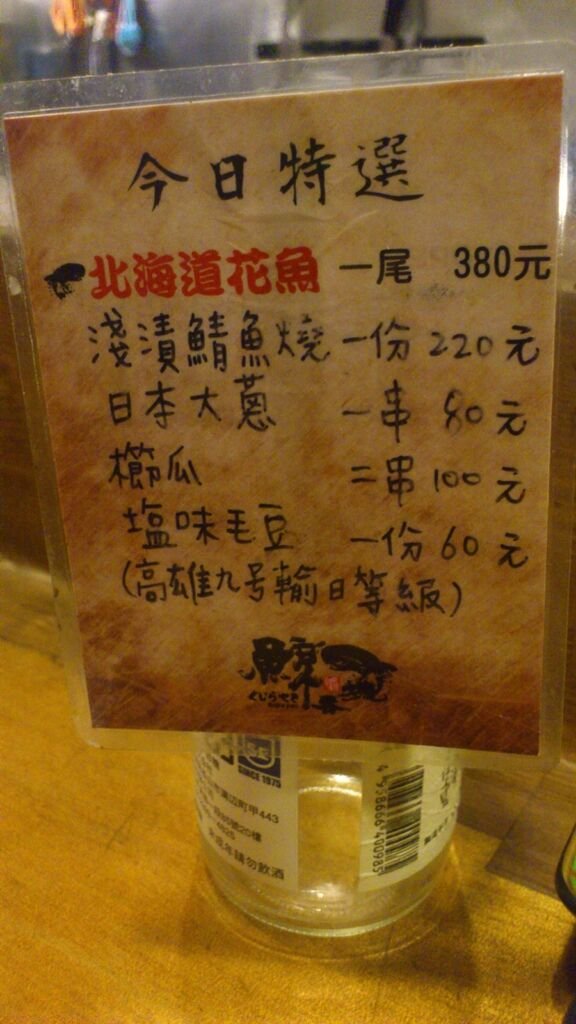 今日特選
北海道花魚 一尾 380元
淺漬鯖魚燒 一份 220元
日本大蔥 一串 80元
櫛瓜 二串 100元
塩味毛豆 一份 60元
(高雄九号輸日等級)
くじらや
SINCE 1975
溝辺町甲443
未成年請勿飲酒
4 958666 400985